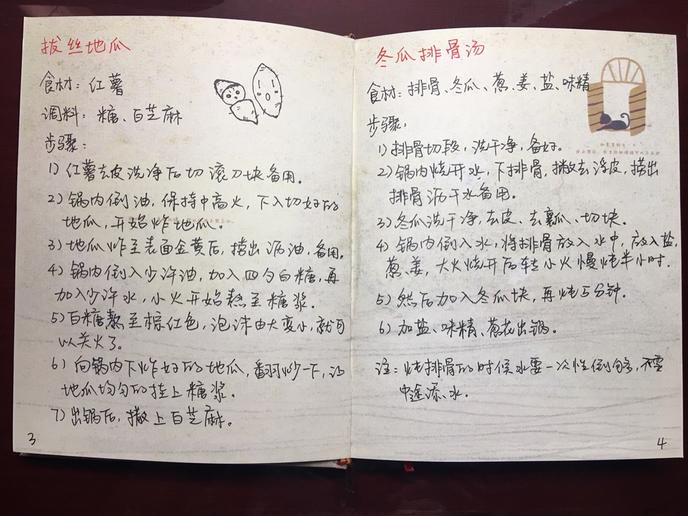 拔丝地瓜
食材：红薯
调料：糖、白芝麻
步骤：
1）红薯去皮洗净后切滚刀块备用。
2）锅内倒油，保持中高火，下入切好的
地瓜，开始炸地瓜。
3）地瓜炸至表面金黄后，捞出沥油，备用。
4）锅内倒入少许油，加入四勺白糖，再
加入少许水，小火开始熬至糖浆。
5）白糖熬至棕红色，泡沫由大变小，就可
以关火了。
6）向锅内下炸好的地瓜，翻炒一下，让
地瓜均匀的挂上糖浆。
7）出锅后，撒上白芝麻。
3
冬瓜排骨汤
食材：排骨、冬瓜、葱、姜、盐、味精
步骤：
1）排骨切段，洗干净，备好。
2）锅内烧开水，下排骨，撇去浮皮，捞出
排骨沥干水备用。
3）冬瓜洗干净，去皮、去瓤、切块。
4）锅内倒入水，将排骨放入水中，放入盐、
葱、姜，大火烧开后转小火慢炖半小时.
5）然后加入冬瓜块，再炖15分钟.
6）加盐、味精、葱花出锅。
注：炖排骨的时候水要一次性倒够，不要
中途添水.
4